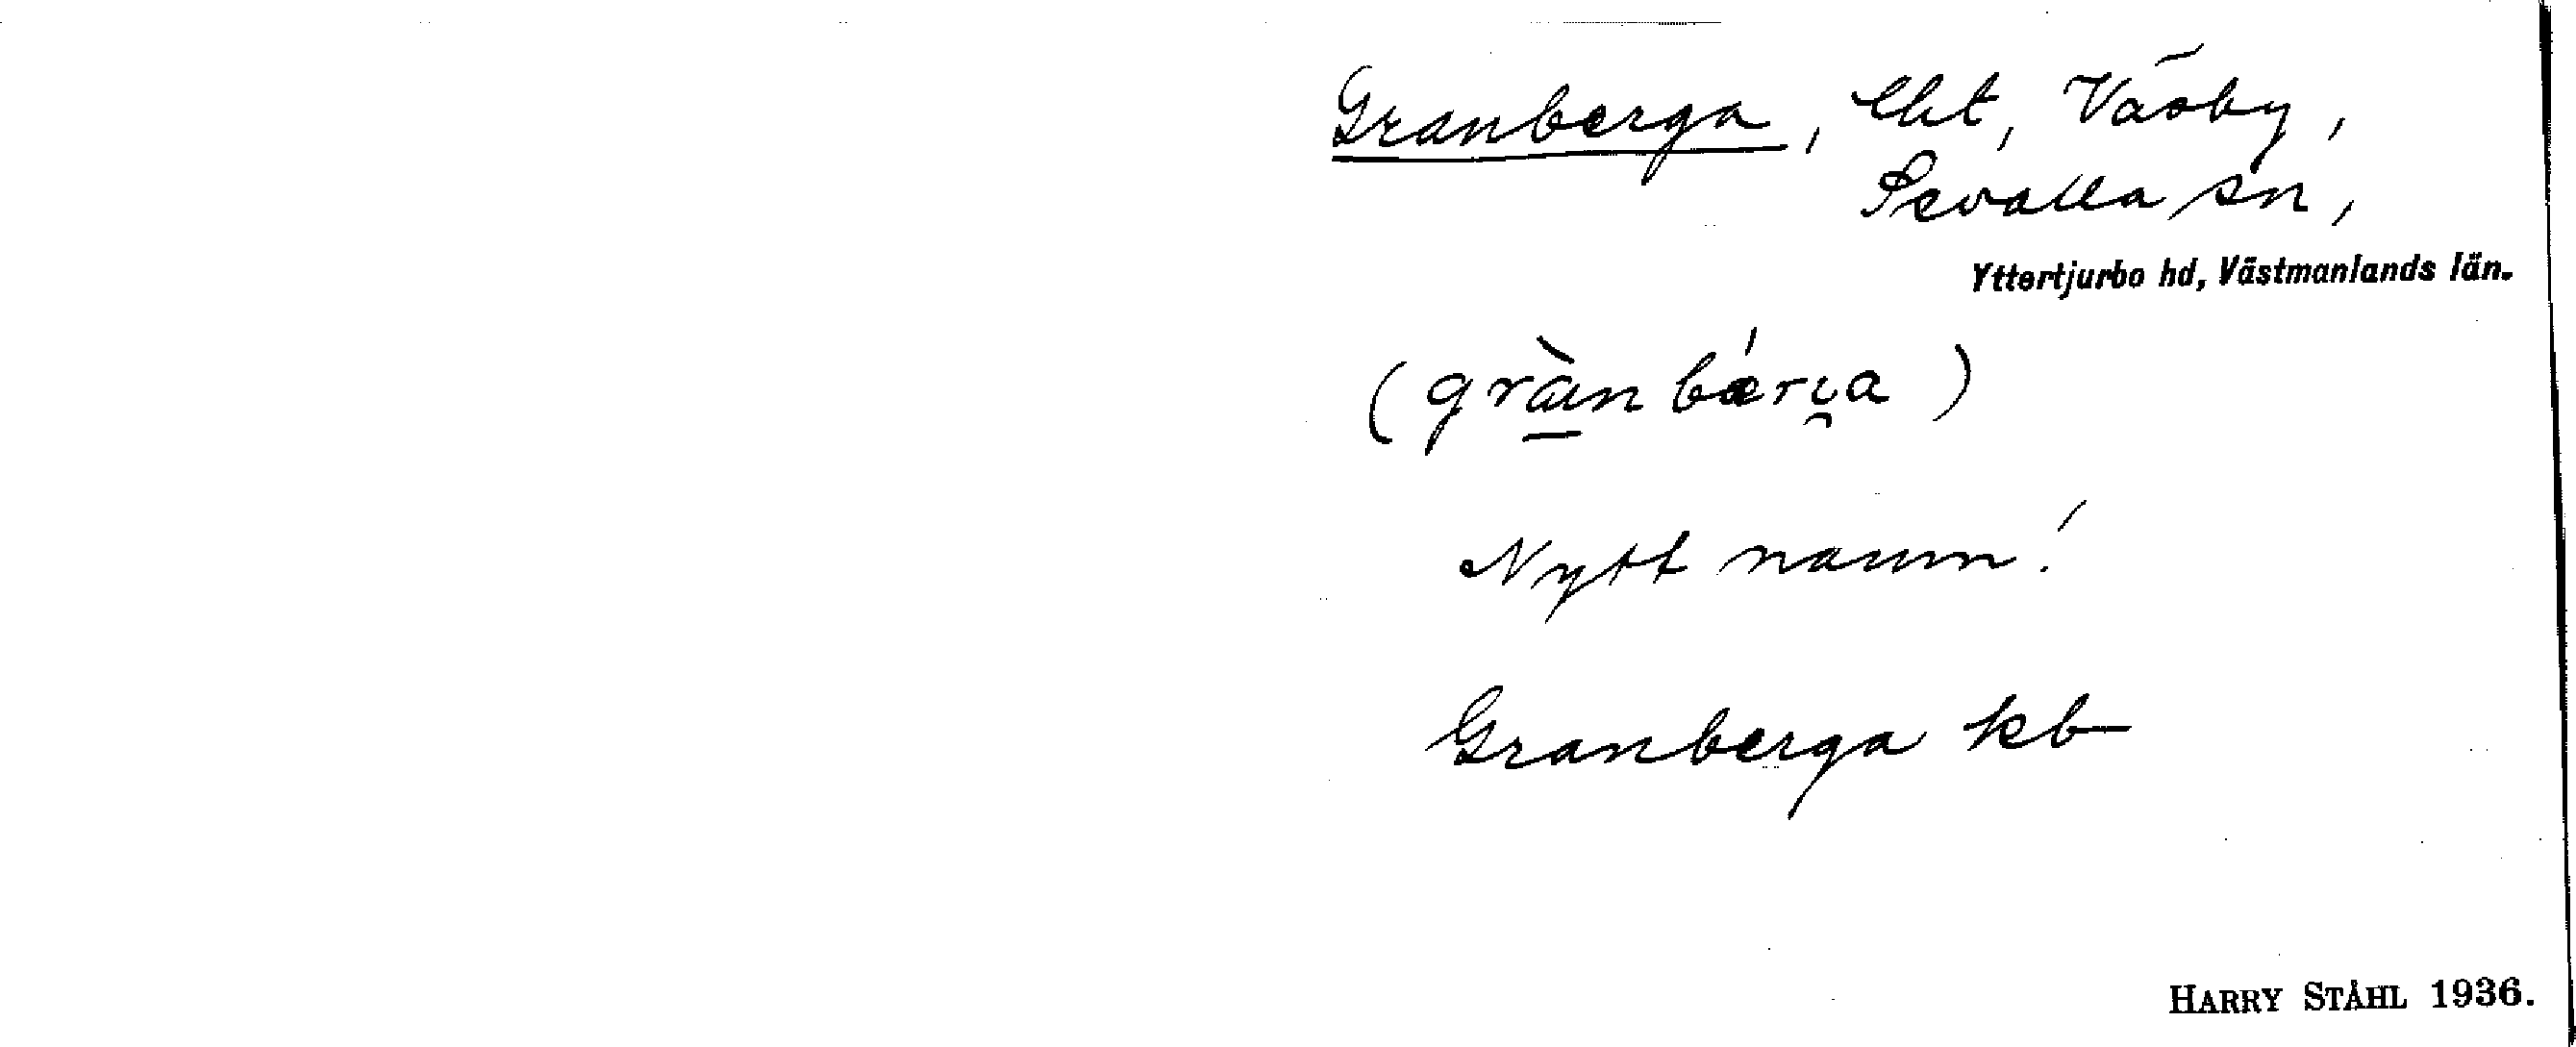 Granberga, lht, Väsby,
Sevalla sn,
Yttertjurbo hd, Västmanlands län.
(grànbǽri̯a)
Nytt namn!
Granberga kb
HARRY STÅHL 1936.